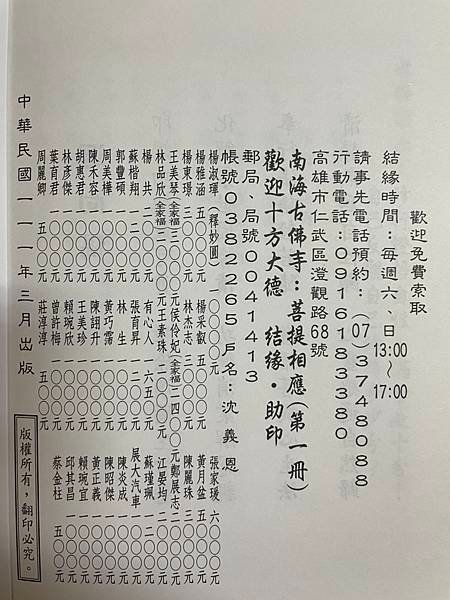 歡迎免費索取
結緣時間：每週六、日13:00～17:00
請事先電話預約：(07)3748088
行動電話：0916183380
高雄市仁武區澄觀路68號
南海古佛寺：菩提相應(第一冊)
歡迎十方大德 結緣・助印
郵局、局號0041413
帳號0382265 戶名：沈義恩
楊淑琿(釋妙圓)一〇〇〇〇元 張家瑗 六〇〇〇元
楊雅涵 五〇〇〇元 楊采叡 五〇〇〇元 黃月盆 五〇〇〇元
楊東璟 三〇〇〇元 林杰志 三〇〇〇元 陳麗珠 三〇〇〇元
王美琴(全家福)三〇〇〇元 侯伶妃(全家福)二四〇〇元 鄭展志 二〇〇〇元
林品欣(全家福)二〇〇〇元 王素珠 二〇〇〇元 江晏均 二〇〇〇元
楊共 二〇〇〇元 有心人 一六五〇元 蘇瑾珮 一二〇〇元
蘇楷翔 一二〇〇元 張育昇 展大汽車 一〇〇〇元
郭豐碩 一〇〇〇元 林生 一〇〇〇元 陳炎成 一〇〇〇元
周美樺 一〇〇〇元 黃巧霈 一〇〇〇元 陳昭傑 一〇〇〇元
陳禾容 一〇〇〇元 陳詡升 一〇〇〇元 黃正義 一〇〇〇元
胡惠君 一〇〇〇元 王美珍 一〇〇〇元 賴琬宜 一〇〇〇元
林彥傑 一〇〇〇元 賴琬欣 一〇〇〇元 邱其昌 一〇〇〇元
葉育君 一〇〇〇元 曾許梅 一〇〇〇元 蔡金柱 五〇〇元
周麗卿 五〇〇元 莊淳淳 五〇〇元
中華民國一一一年三月出版
版權所有，翻印必究。